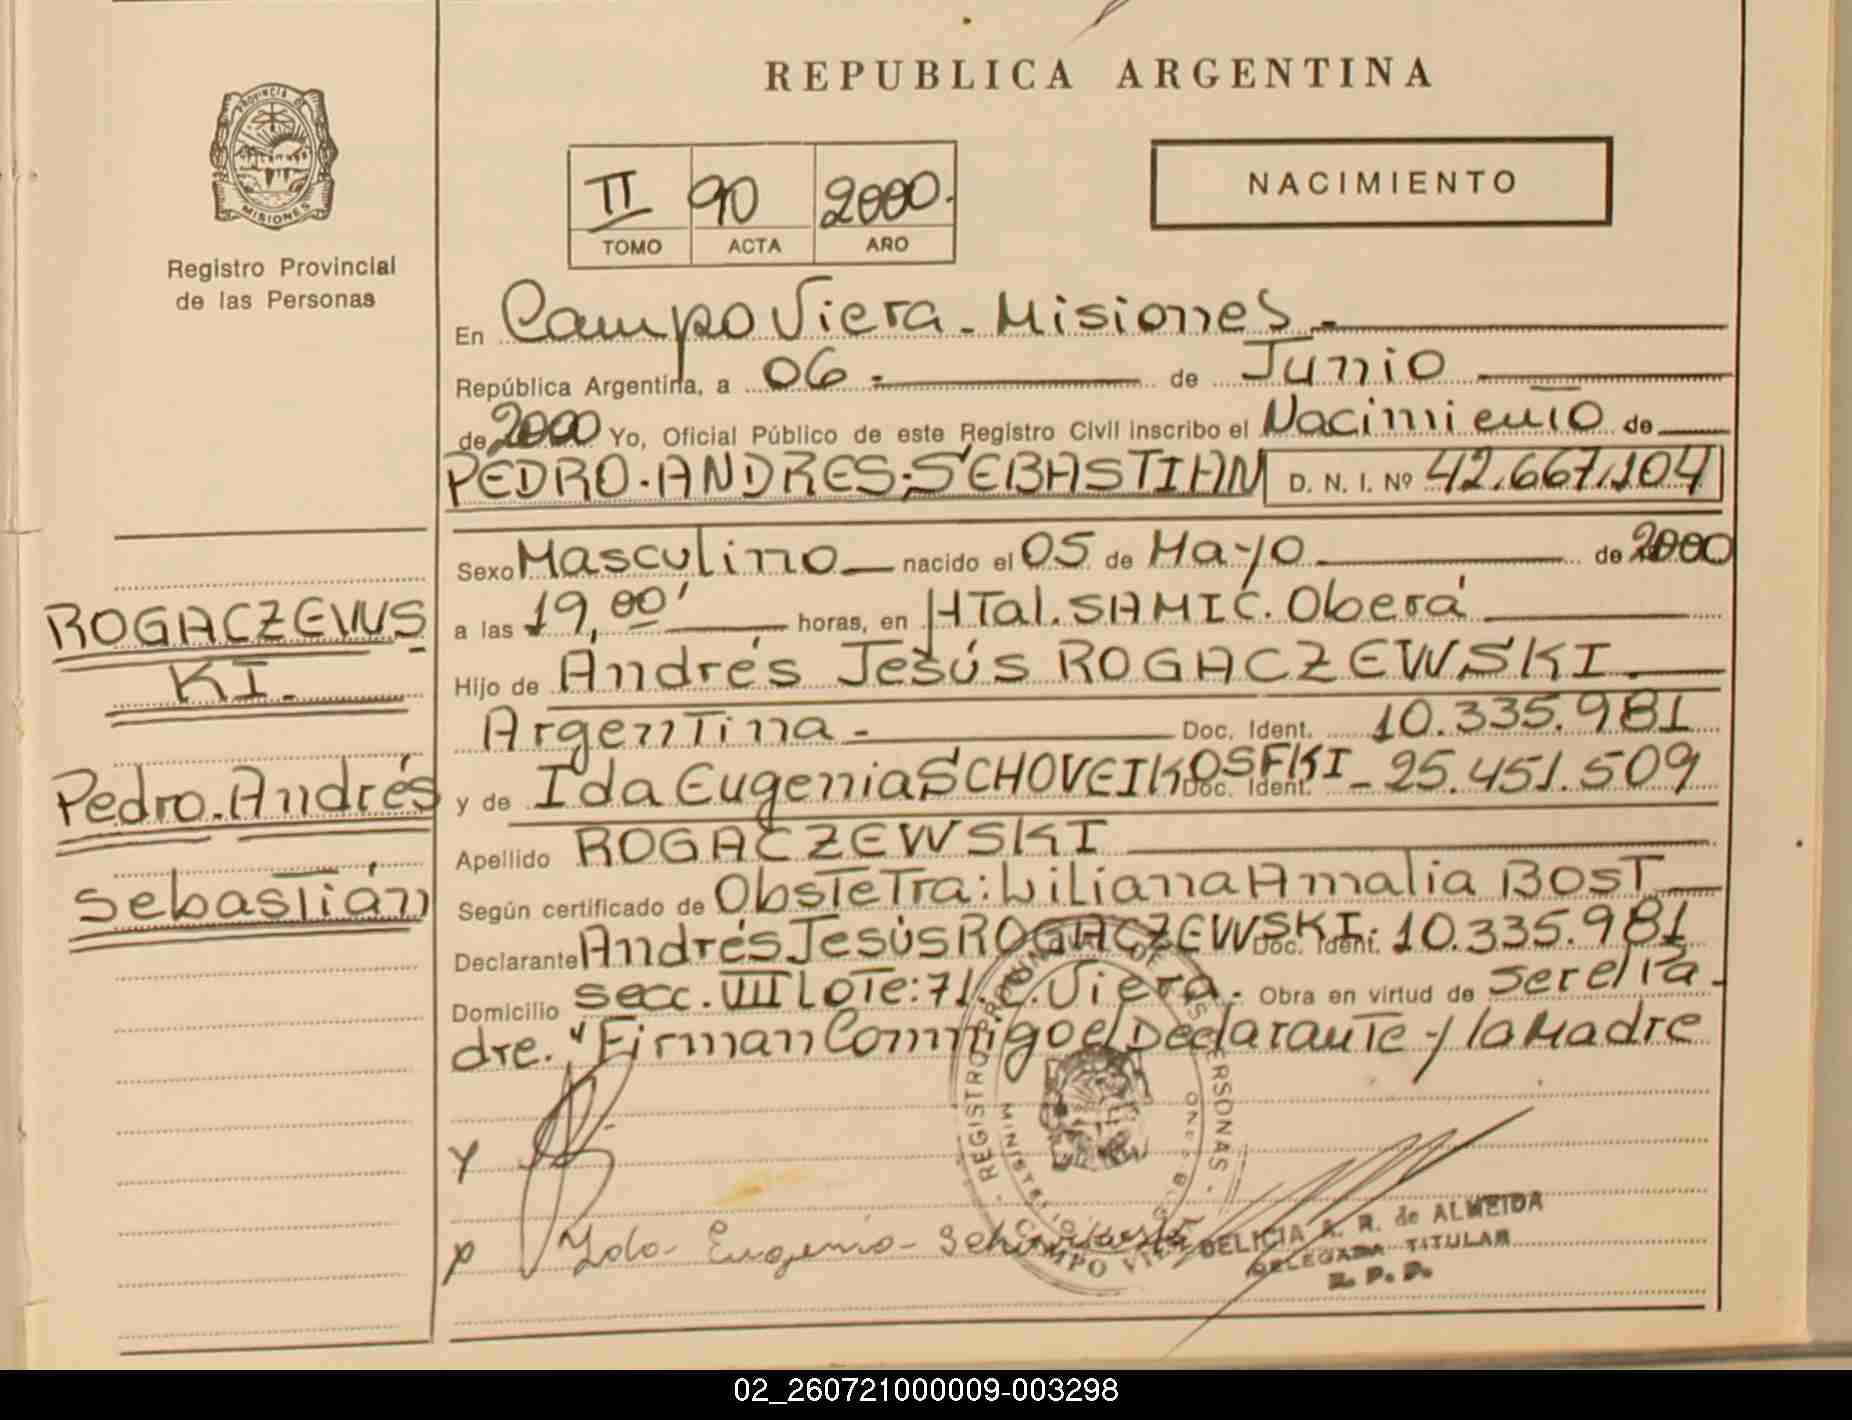 REPUBLICA ARGENTINA
PROVINCIA DE
MISIONES
Registro Provincial
de las Personas
II 90 2000.
TOMO ACTA AÑO
NACIMIENTO
En Campo Viera - Misiones.-
República Argentina, a 06.- de Junio
de 2000 Yo, Oficial Público de este Registro Civil inscribo el Nacimiento de
PEDRO.ANDRES.SEBASTIAN D. N. I. Nº 42.667.104
Sexo Masculino nacido el 05 de Mayo de 2000
a las 19,00' horas, en HTal. SAMIC. Oberá
Hijo de Andrés Jesús ROGACZEWSKI.
Argentina.- Doc. Ident. 10.335.981
y de Ida Eugenia SCHOVEIKOSFKI Doc. Ident. - 25.451.509
Apellido ROGACZEWSKI
Según certificado de Obstetra: Liliana Amalia BOST
Declarante Andrés Jesús ROGACZEWSKI. Doc. Ident. 10.335.981
Domicilio secc. VIII Lote: 71. C. Viera. Obra en virtud de ser el Pa-
dre. "Firman Conmigo el Declarante y la Madre
ROGACZEWS
KI.
Pedro.Andrés
Sebastián
REGISTRO PROVINCIAL DE LAS PERSONAS
CAMPO VIERA
Ida Eugenia
DELICIA A. R. de ALMEIDA
DELEGADA TITULAR
R. P. P.
02_260721000009-003298